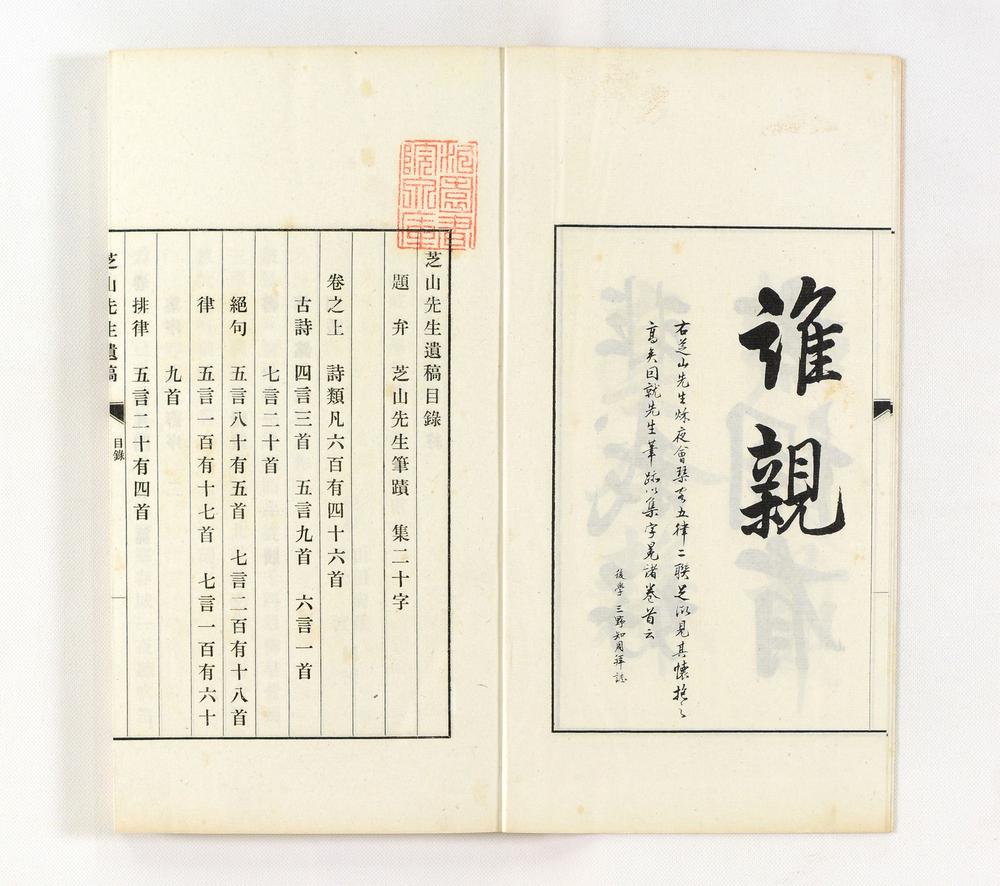 誰親
右芝山先生秋夜會五律二聯足以見其懷抱之
高矣因就先生筆跡以集字冕諸卷首云
後學 三野知周拜誌
芝山先生遺稿目錄
題 弁 芝山先生筆蹟 集二十字
卷之上 詩類凡六百有四十六首
古詩 四言三首 五言九首 六言一首
七言二十首
絕句 五言八十有五首 七言二百有十八首
律 五言一百有十七首 七言一百有六十
九首
排律 五言二十有四首
芝山先生遺稿
目錄